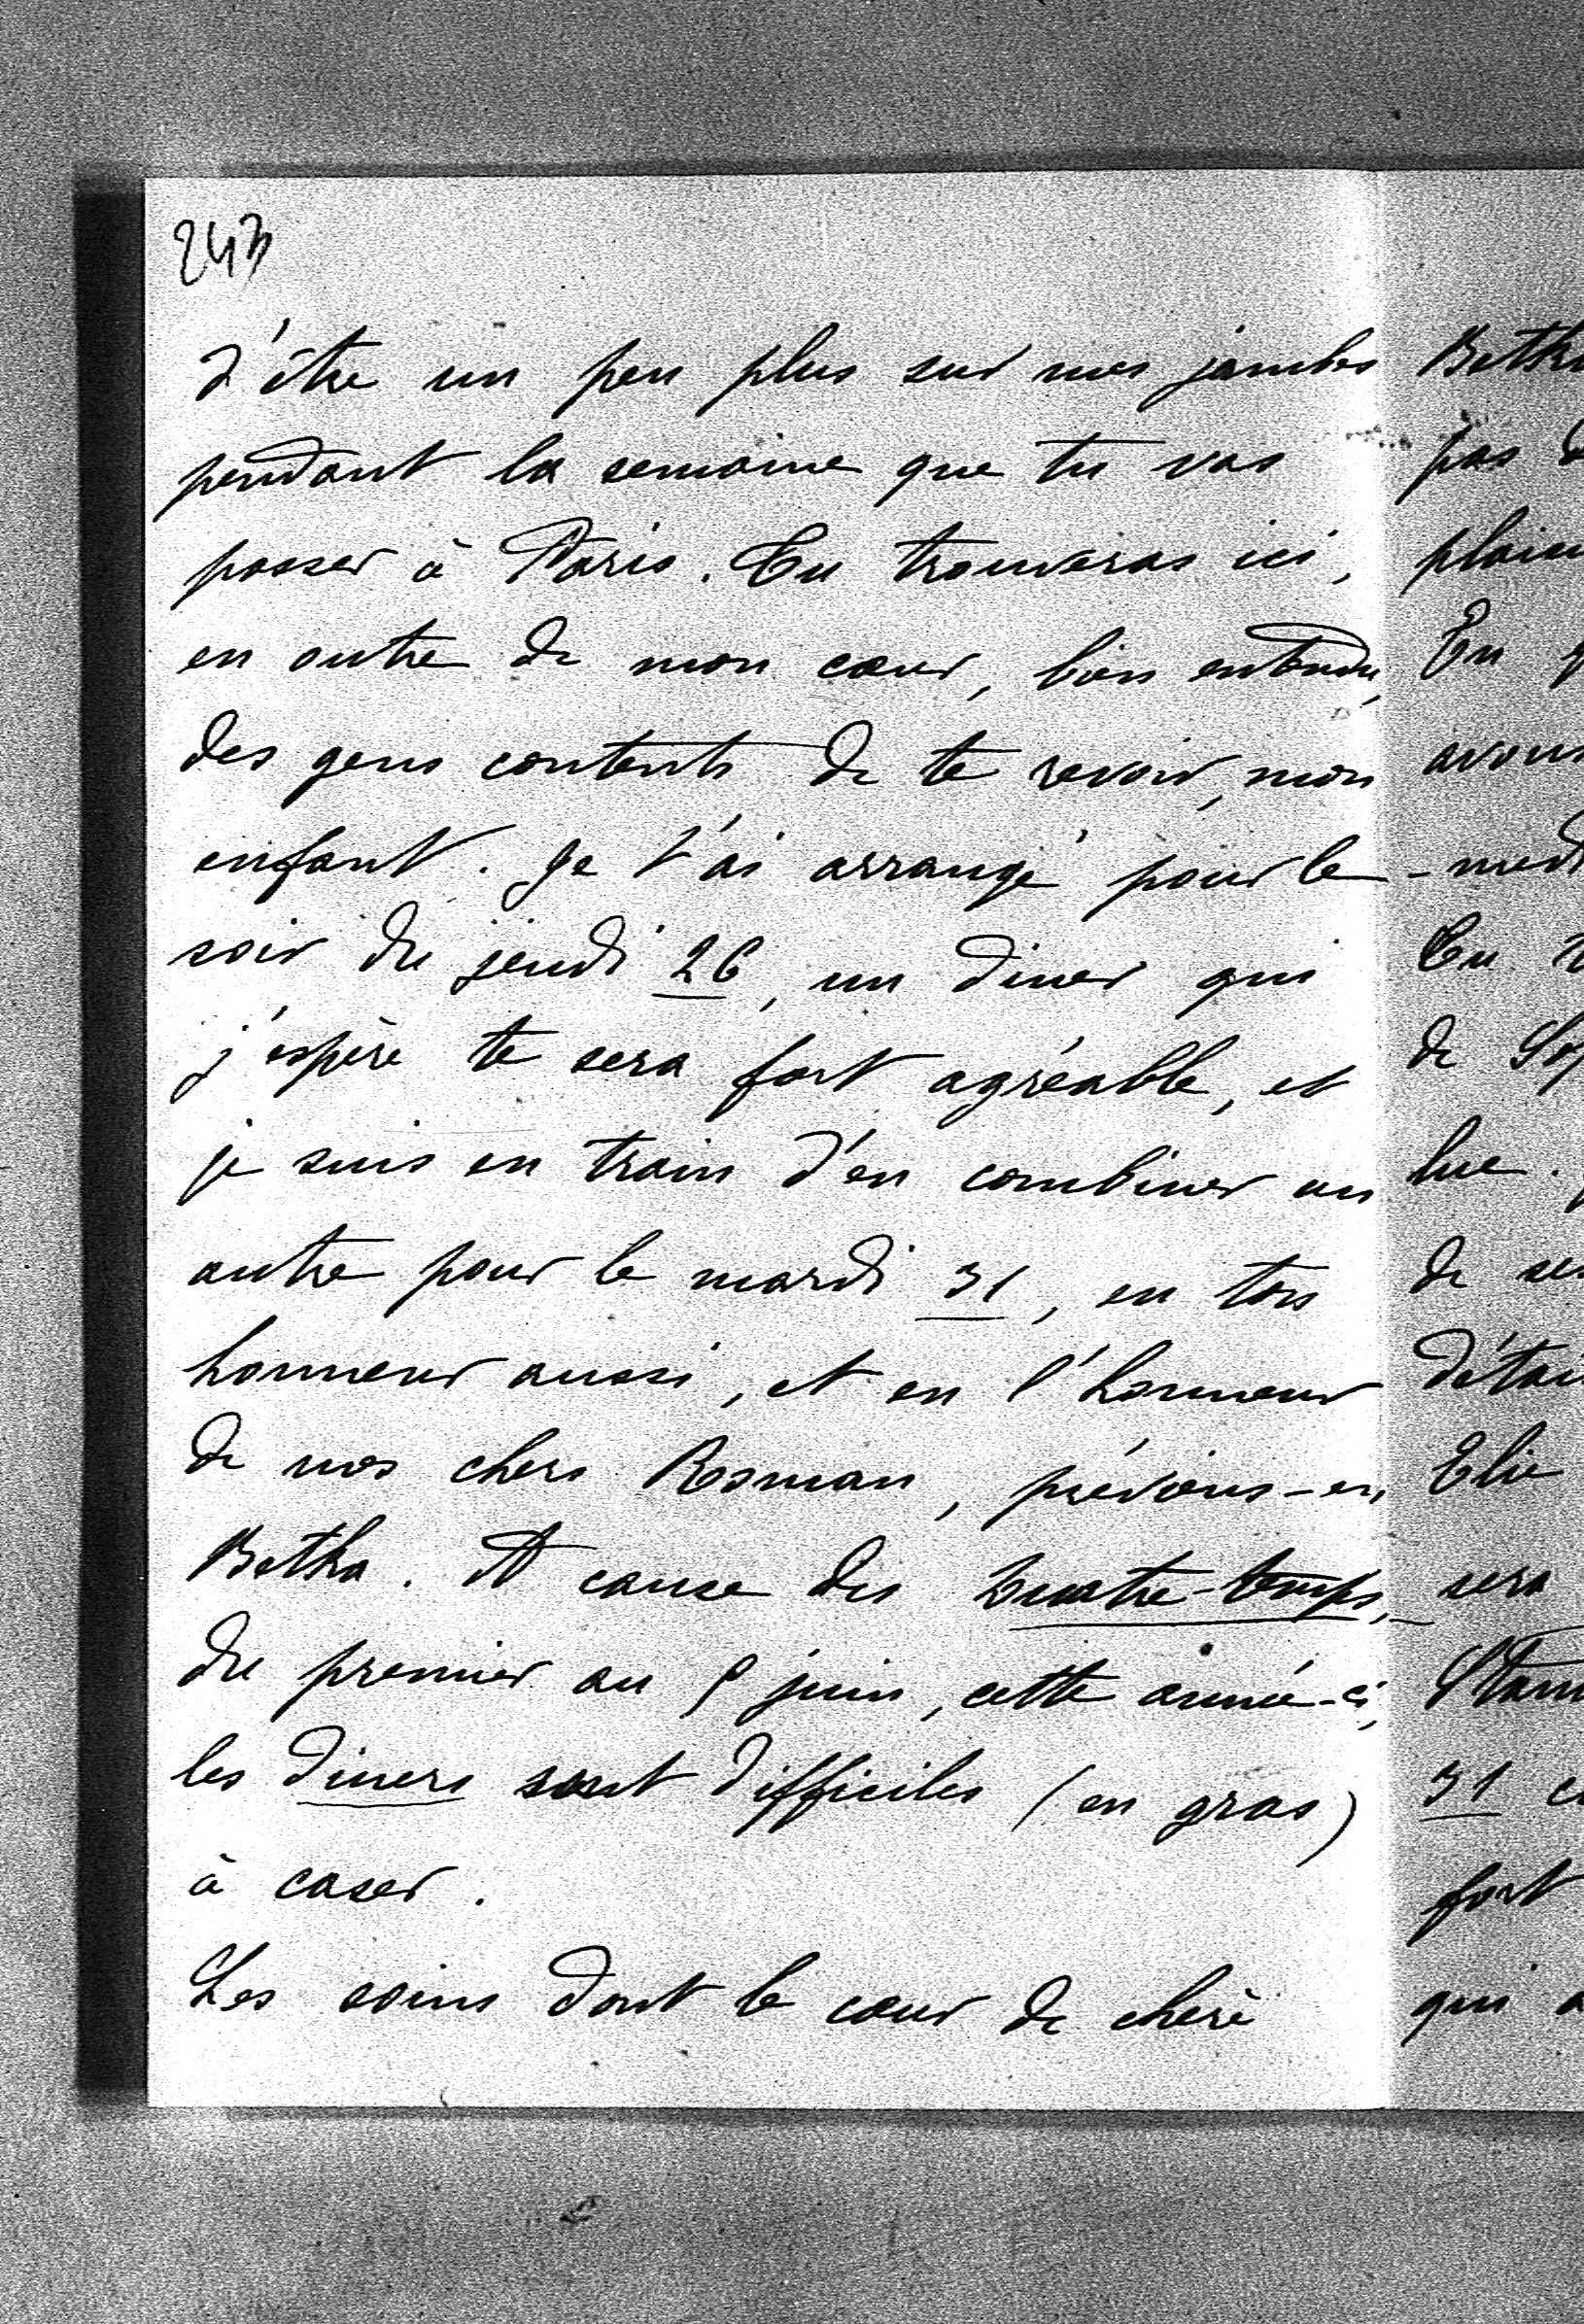 243
d'être un peu plus sur mes jambes
pendant la semaine que tu vas
passer à Paris. Tu trouveras ici,
en outre de mon cœur, bien entendu,
des gens contents de te revoir, mon
enfant. Je t'ai arrangé pour le
soir du jeudi 26, un diner qui
j'espère te sera fort agréable, et
je suis en train d'en combiner un
autre pour le mardi 31, en ton
honneur aussi, et en l'honneur
de nos chers Rosman, préviens-en
Betka. A cause des Quatre-temps,
du premier au 5 juin, cette année-ci,
les diners sont difficiles (en gras)
à caser.
Les soins dont le cœur de chère
pas
Tu
de
de
Elie
sera
31
fort
qui